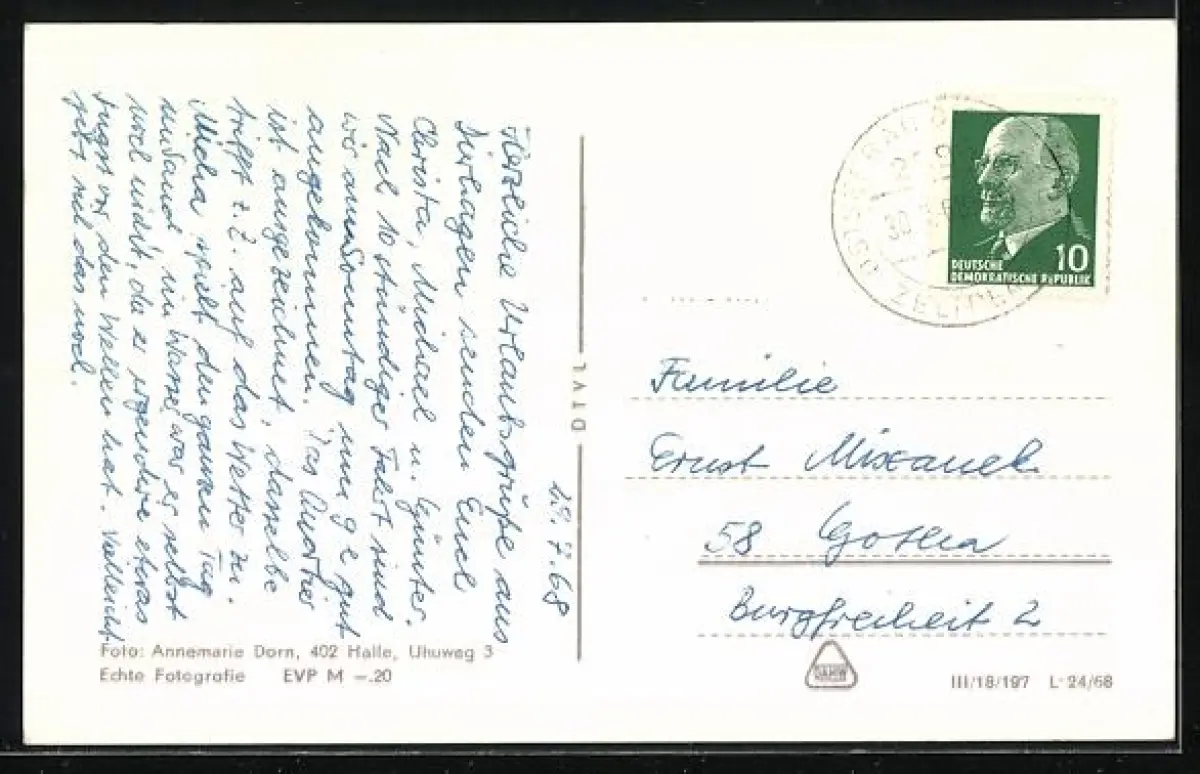 29.7.68
Herzliche Urlaubsgrüße aus
Dierhagen senden Euch
Christa, Michael u. Günter.
Nach 10 stündiger Fahrt sind
wir am Sonntag um 9 h gut
angekommen. Das Quartier
ist ausgezeichnet, dasselbe
trifft z. Z. auf das Wetter zu.
Micha spielt den ganzen Tag
im Sand, im Wasser war er selbst
noch nicht, da er irgendwie etwas
Angst vor den Wellen hat. Vielleicht
gibt sich das noch.
Foto: Annemarie Dorn, 402 Halle, Uhuweg 3
Echte Fotografie EVP M -.20
OSTSEEBAD
DEUTSCHE
DEMOKRATISCHE REPUBLIK
10
Familie
Ernst Mixanek
58 Gotha
Burgfreiheit 2
III/18/197 L 24/68